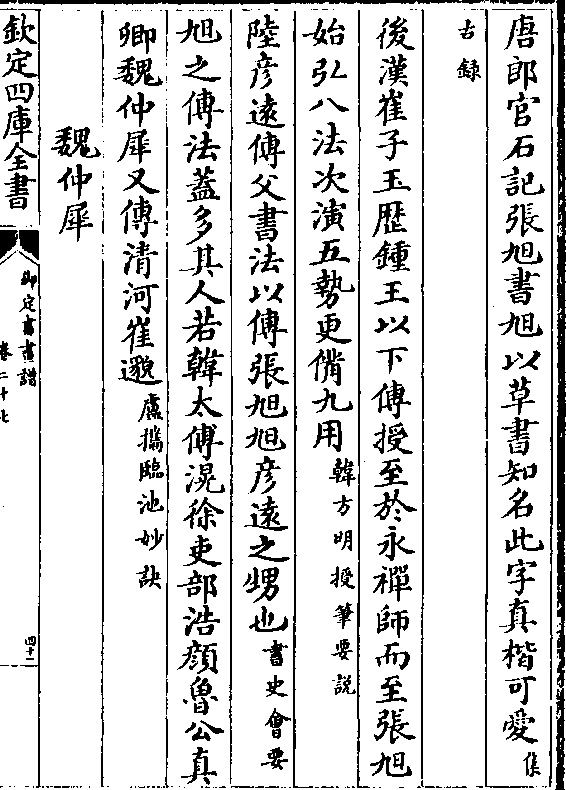 唐郎官石記張旭書旭以草書知名此字真楷可愛集
古錄
後漢崔子玉歷鍾王以下傳授至於永禪師而至張旭
始弘八法次演五勢更備九用韓方明授筆要說
陸彦遠傳父書法以傳張旭旭彦遠之甥也書史會要
旭之傳法葢多其人若韓太傅滉徐吏部浩顔魯公真
卿魏仲犀又傳清河崔邈盧攜臨池妙訣
魏仲犀
欽定四庫全書
御定書畫譜
卷二十七
四十二